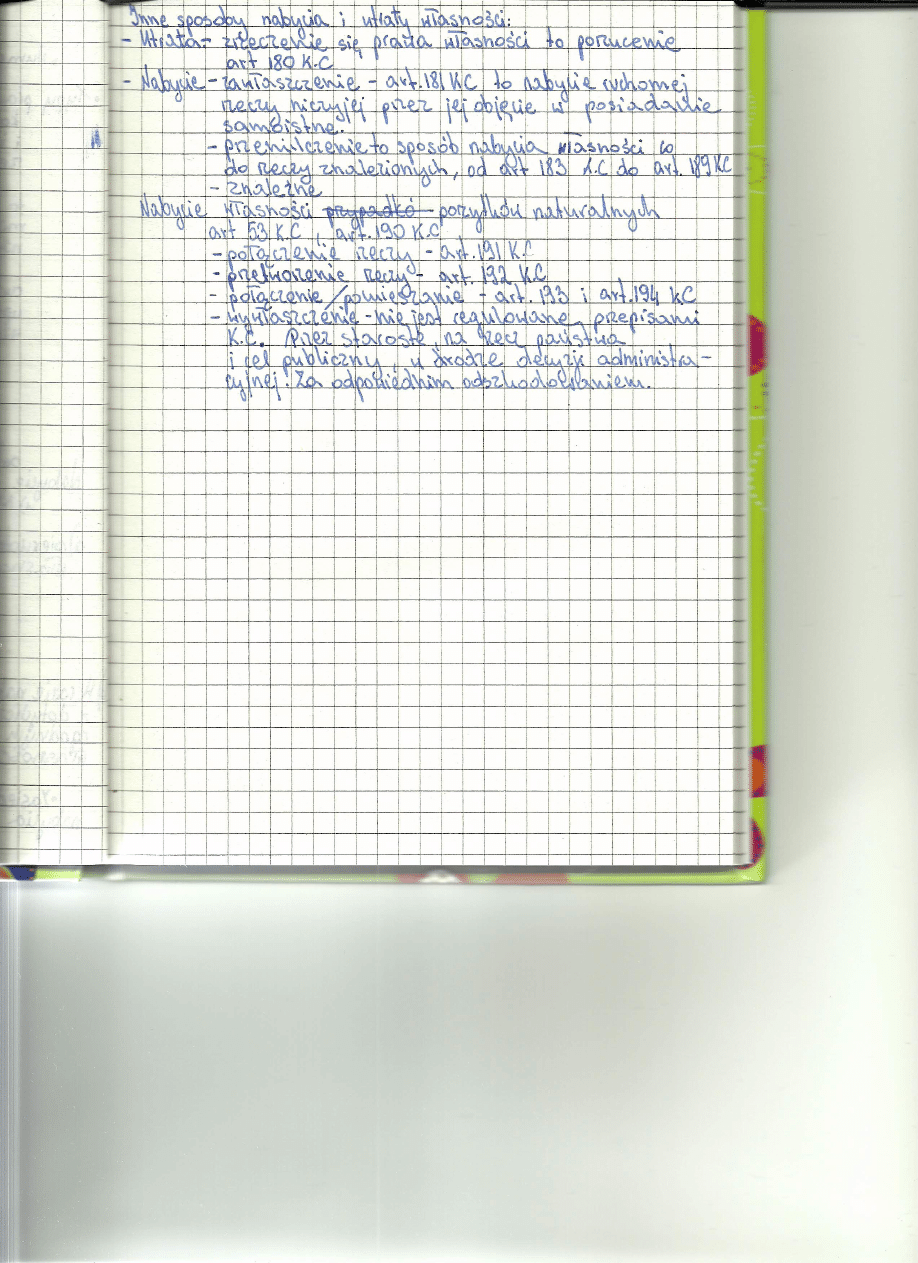 Inne sposoby nabycia i utraty własności:
- Utrata - zrzeczenie się prawa własności to porzucenie
art 180 K.C
- Nabycie - zawłaszczenie - art.181 KC to nabycie ruchomej
rzeczy niczyjej przez jej objęcie w posiadanie
samoistne.
- przemilczenie to sposób nabycia własności co
do rzeczy znalezionych, od art 183 K.C do art. 189 KC
- znaleźne
Nabycie własności przypadkó pożytków naturalnych
art 53 K.C , art.190 K.C
- połączenie rzeczy - art.191 K.C
- przetworzenie rzeczy - art. 192 K.C
- połączenie / pomieszanie - art. 193 i art.194 KC
- wywłaszczenie - nie jest regulowane przepisami
K.C. Przez starostę, na rzecz państwa
i cel publiczny, w drodze decyzji administra-
cyjnej. Za odpowiednim odszkodowaniem.